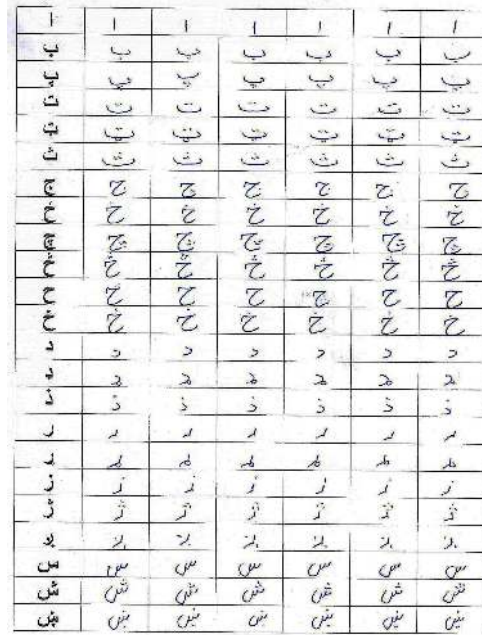 ا ا ا ا ا ا ا
ب ب ب ب ب ب ب
پ پ پ پ پ پ پ
ت ت ت ت ت ت ت
ټ ټ ټ ټ ټ ټ ټ
ث ث ث ث ث ث ث
ج ج ج ج ج ج ج
ځ ځ ځ ځ ځ ځ ځ
چ چ چ چ چ چ چ
څ څ څ څ څ څ څ
ح ح ح ح ح ح ح
خ خ خ خ خ خ خ
د د د د د د د
ډ ډ ډ ډ ډ ډ ډ
ذ ذ ذ ذ ذ ذ ذ
ر ر ر ر ر ر ر
ړ ړ ړ ړ ړ ړ ړ
ز ز ز ز ز ز ز
ژ ژ ژ ژ ژ ژ ژ
ږ ږ ږ ږ ږ ږ ږ
س س س س س س س
ش ش ش ش ش ش ش
ښ ښ ښ ښ ښ ښ ښ